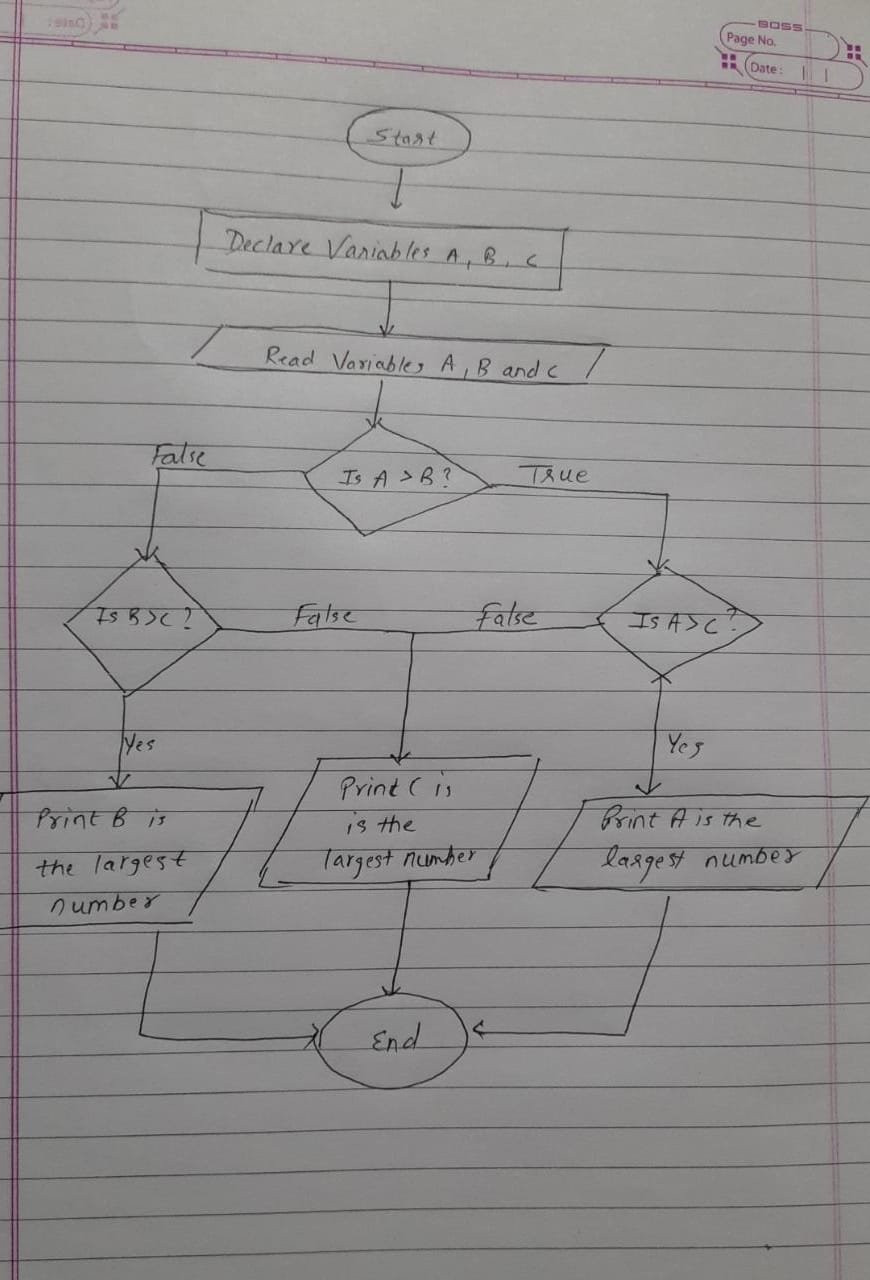 BOSS
Page No.
Date:
Start
Declare Variables A, B, C
Read Variables A, B and C
False
Is A > B?
True
Is B>C?
False
False
Is A>C?
Yes
Yes
Print B is
the largest
number
Print C is
is the
largest number
Print A is the
largest number
End